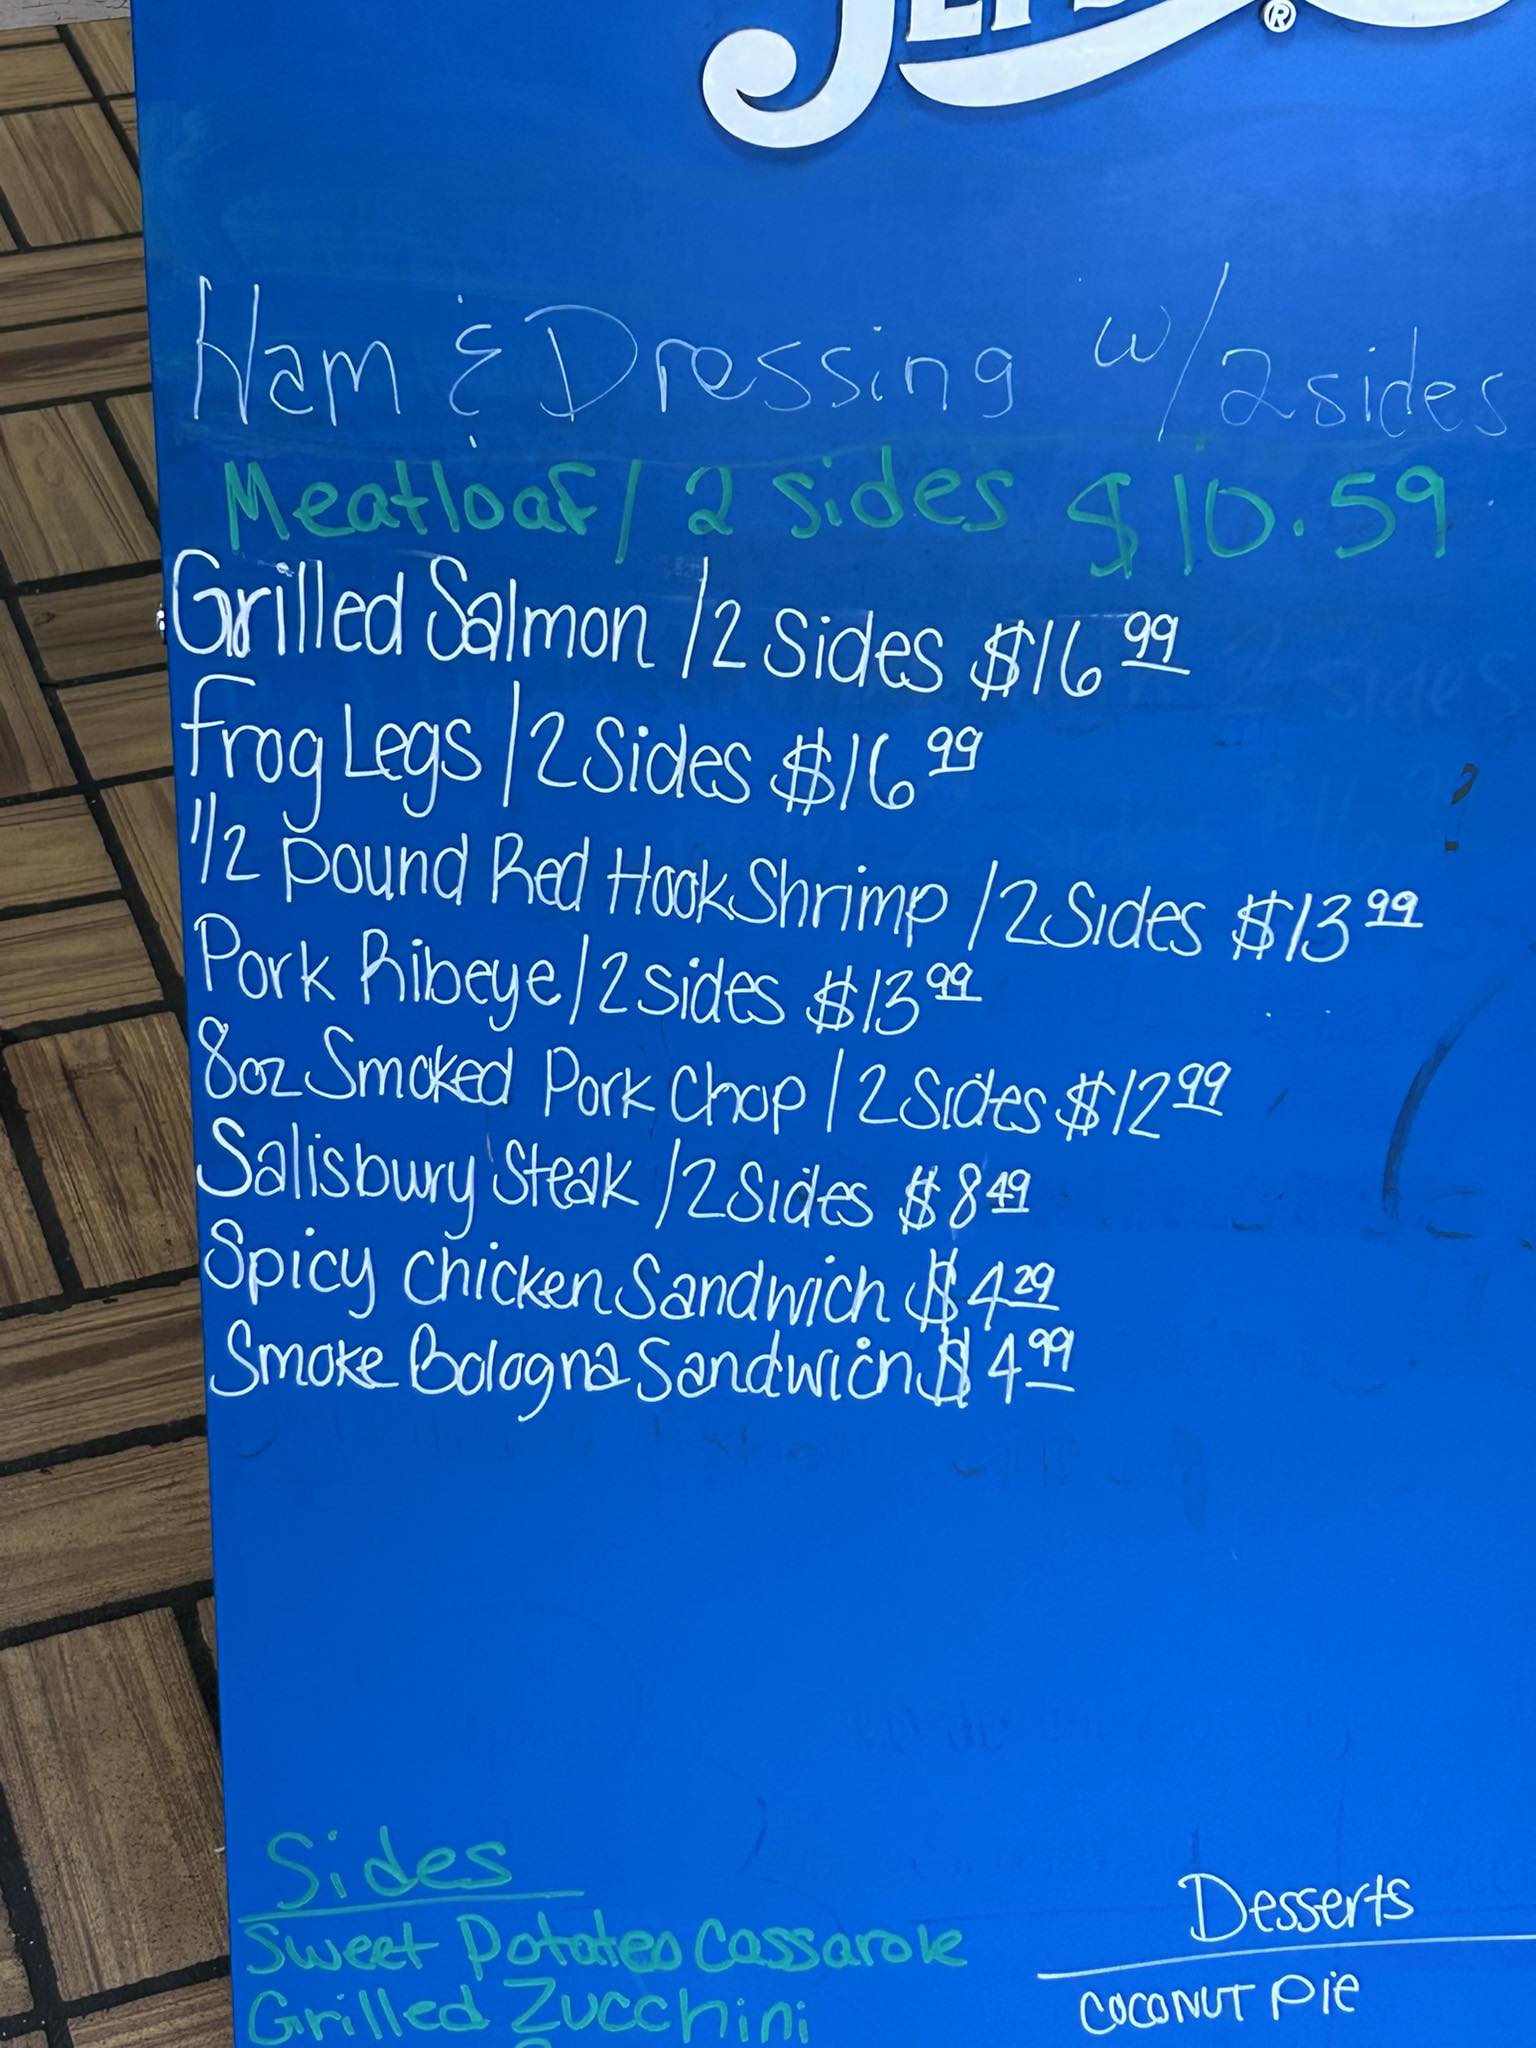 ®
Ham & Dressing w/2 sides
Meatloaf / 2 sides $10.59
Grilled Salmon /2 Sides $16 99
Frog Legs /2 Sides $16 99
1/2 Pound Red Hook Shrimp /2 Sides $13 99
Pork Ribeye /2 sides $13 99
8oz Smoked Pork Chop /2 Sides $12 99
Salisbury Steak /2 Sides $8 49
Spicy Chicken Sandwich $4 29
Smoke Bologna Sandwich $4 99
Sides
Sweet Potatoe Cassarole
Grilled Zucchini
Desserts
Coconut Pie